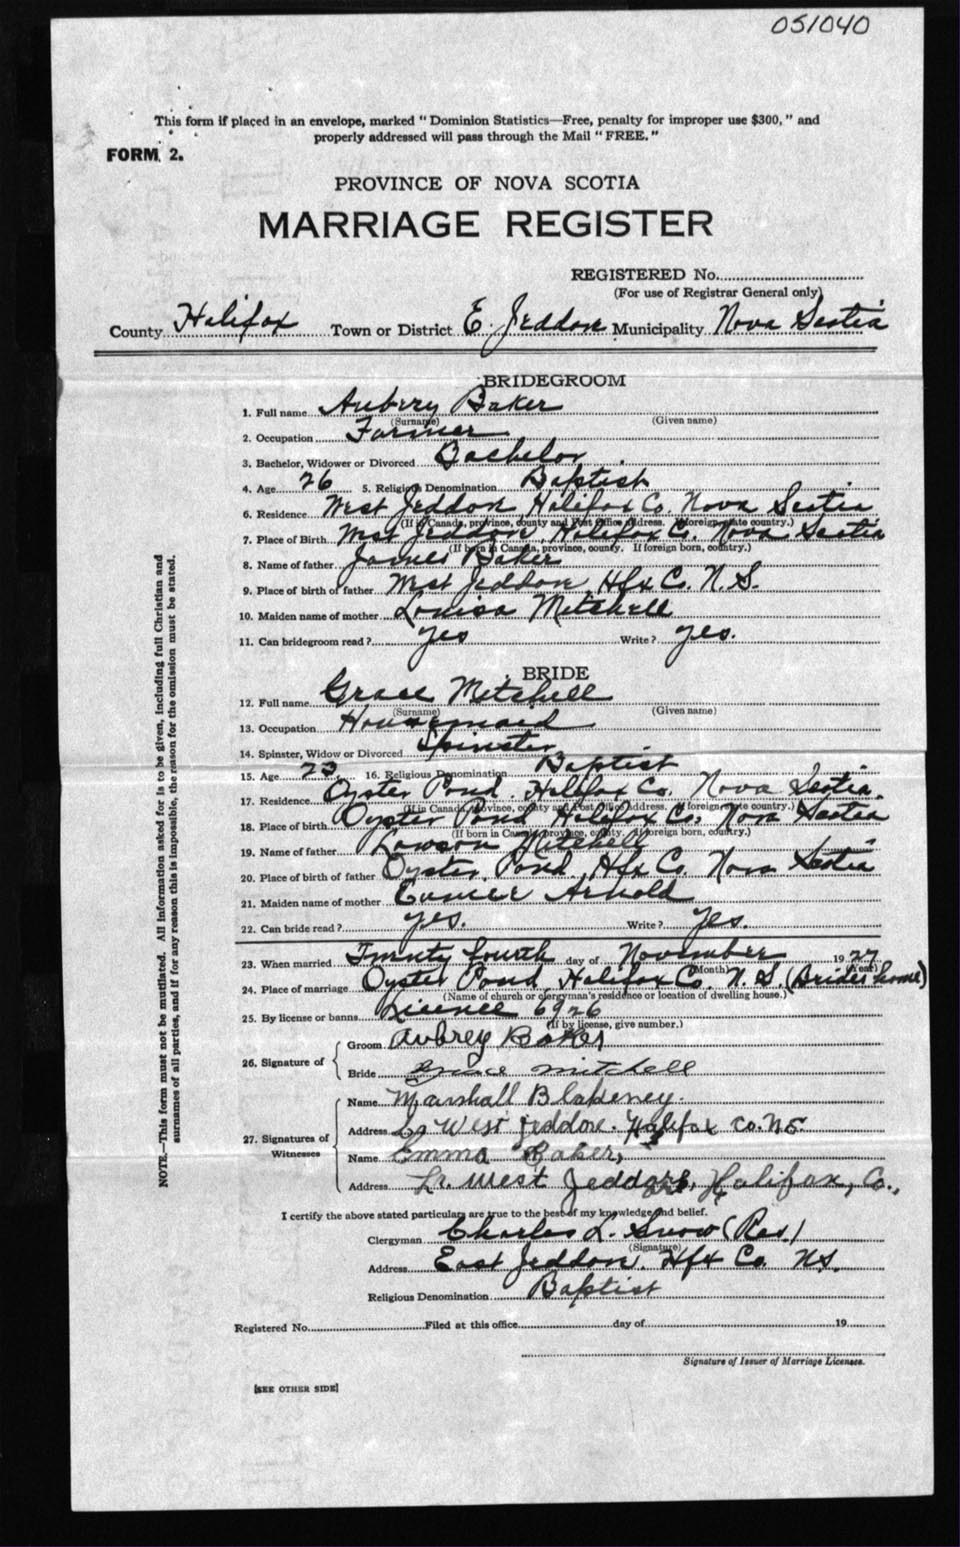 051040
This form if placed in an envelope, marked "Dominion Statistics—Free, penalty for improper use $300," and
properly addressed will pass through the Mail "FREE."
FORM 2.
PROVINCE OF NOVA SCOTIA
MARRIAGE REGISTER
REGISTERED No.
(For use of Registrar General only)
County Halifax Town or District E. Jeddore Municipality Nova Scotia
BRIDEGROOM
1. Full name Aubrey Baker
(Surname) (Given name)
2. Occupation Farmer
3. Bachelor, Widower or Divorced Bachelor
4. Age 26 5. Religious Denomination Baptist
6. Residence West Jeddore, Halifax Co. Nova Scotia
(If in Canada, province, county and Post Office address. If foreign, state country.)
7. Place of Birth West Jeddore, Halifax Co. Nova Scotia
(If born in Canada, province, county. If foreign born, country.)
8. Name of father James Baker
9. Place of birth of father West Jeddore, Hfx Co. N.S.
10. Maiden name of mother Louisa Mitchell
11. Can bridegroom read? yes Write? yes.
BRIDE
12. Full name Grace Mitchell
(Surname) (Given name)
13. Occupation Housemaid
14. Spinster, Widow or Divorced Spinster
15. Age 23 16. Religious Denomination Baptist
17. Residence Oyster Pond, Halifax Co. Nova Scotia.
(If in Canada, province, county and Post Office address, if foreign state country.)
18. Place of birth Oyster Pond Halifax Co. Nova Scotia
(If born in Canada, province, county. If foreign born, country.)
19. Name of father Lawson Mitchell
20. Place of birth of father Oyster Pond, Hfx Co. Nova Scotia
21. Maiden name of mother Arnold
22. Can bride read? yes. Write? Yes.
23. When married Twenty fourth day of November 1927
(Month) (Year)
24. Place of marriage Oyster Pond, Halifax Co. N.S. (Brides home)
(Name of church or clergyman's residence or location of dwelling house.)
25. By license or banns Licence 6926
(If by license, give number.)
26. Signature of
Groom Aubrey Baker
Bride Grace Mitchell
27. Signatures of Witnesses
Name Marshall Blakeney.
Address Lr West Jeddore. Halifax Co. N.S.
Name Emma Baker,
Address Lr. West Jeddore, Halifax, Co.,
I certify the above stated particulars are true to the best of my knowledge and belief.
Clergyman Charles L. Snow (Rev.)
(Signature)
Address East Jeddore. Hfx Co. N.S.
Religious Denomination Baptist
Registered No. Filed at this office day of 19
Signature of Issuer of Marriage Licenses.
[SEE OTHER SIDE]
NOTE.—This form must not be mutilated. All information asked for is to be given, including full Christian and
surnames of all parties, and if for any reason this is impossible, the reason for the omission must be stated.